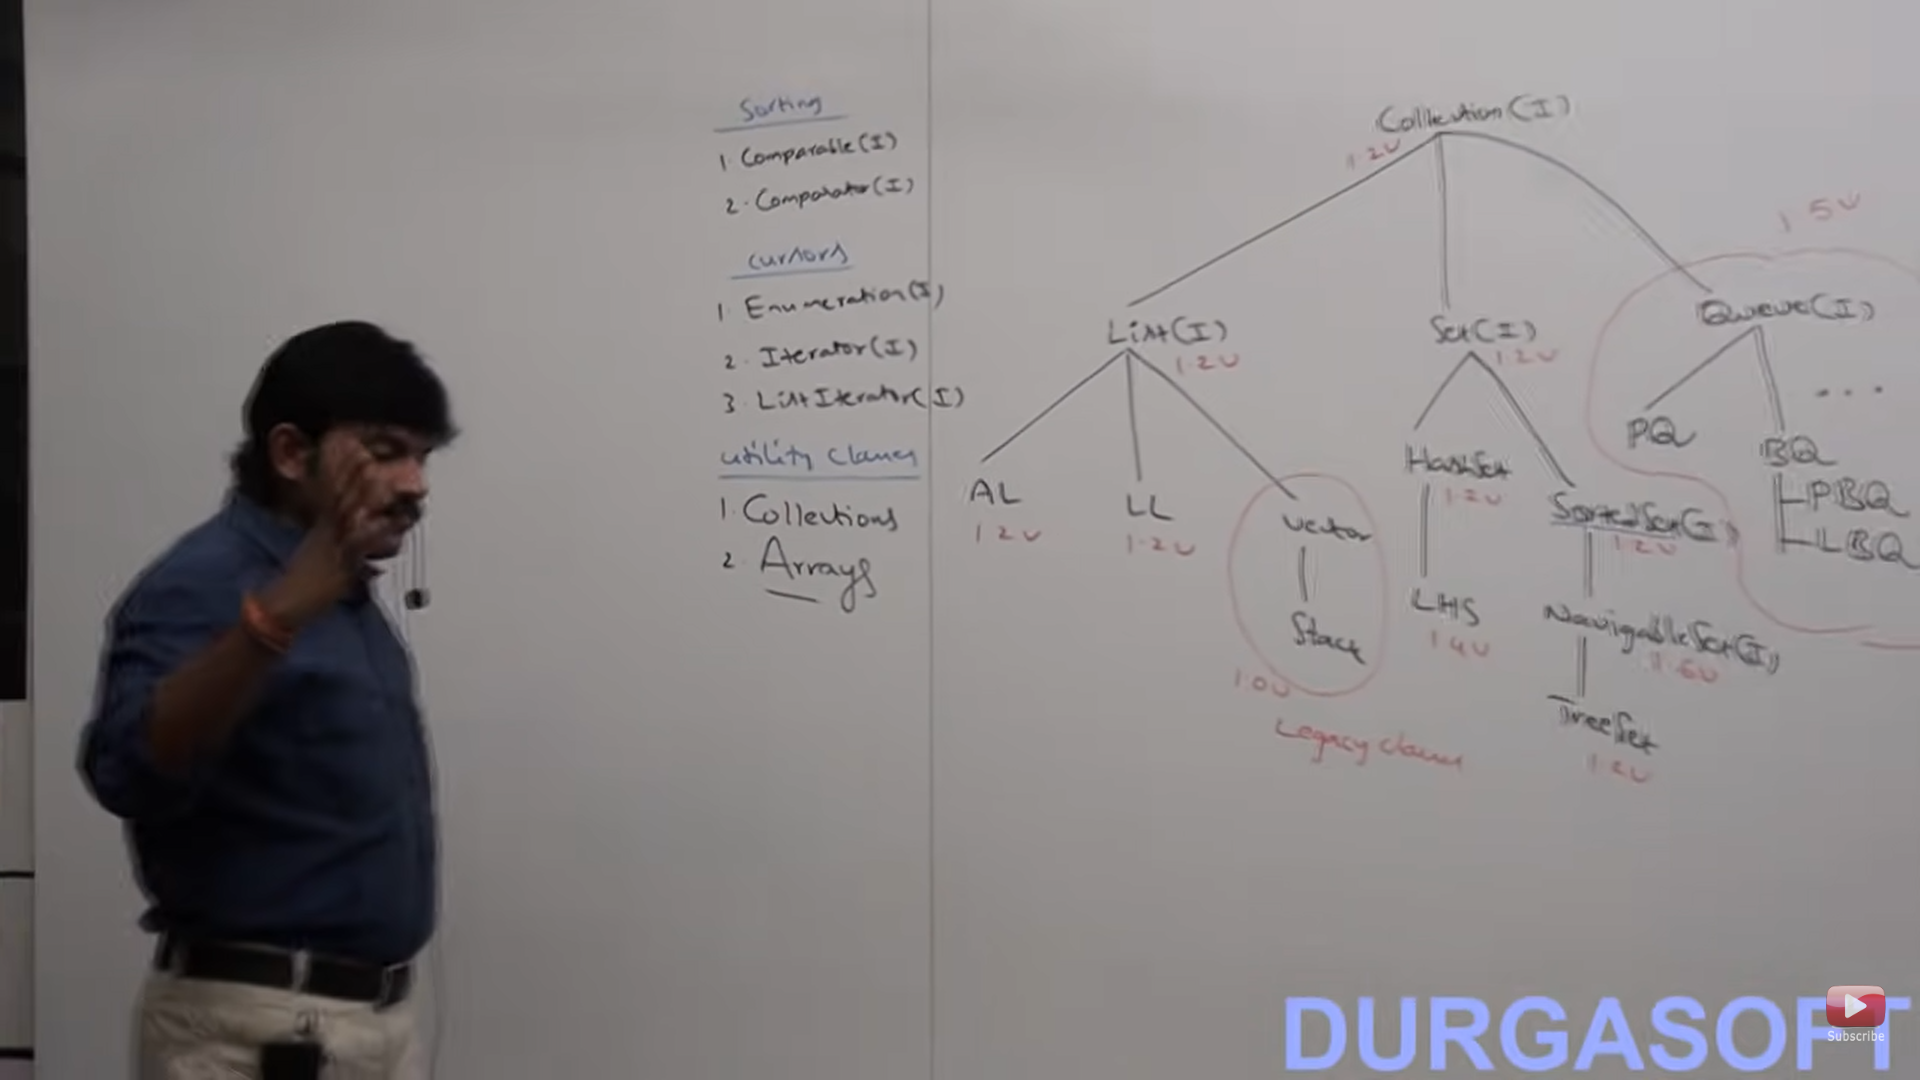 Sorting
1. Comparable(I)
2. Comparator(I)
cursors
1. Enumeration(I)
2. Iterator(I)
3. ListIterator(I)
utility classes
1. Collections
2. Arrays
Collection(I)
1.2v
1.5v
List(I)
1.2v
Set(I)
1.2v
Queue(I)
...
PQ
BQ
PBQ
LBQ
AL
1.2v
LL
1.2v
Vector
Stack
1.0v
Legacy classes
HashSet
1.2v
LHS
1.4v
SortedSet(I)
1.2v
NavigableSet(I)
1.6v
TreeSet
1.2v
DURGASOFT
Subscribe